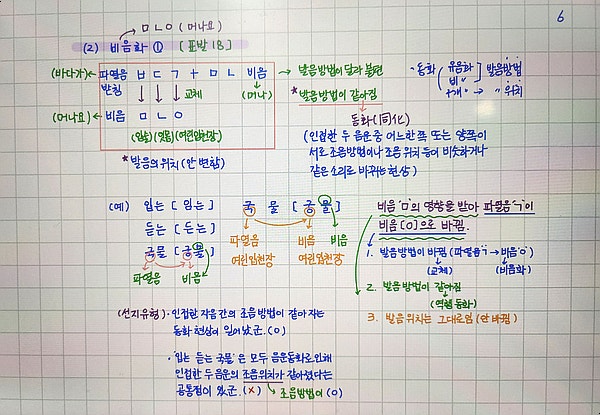 6
ㅁㄴㅇ (머나요)
(2) 비음화 ① [표발 18]
(바다가) ← 파열음 ㅂ ㄷ ㄱ + ㅁ ㄴ 비음 → 발음방법이 달라 불편
받침 ↓ ↓ ↓ 교체 (머나) * 발음방법이 같아짐
(머나요) ← 비음 ㅁ ㄴ ㅇ 동화 (同化)
(입술) (잇몸) (여린입천장)
* 발음의 위치 (안 변함)
(인접한 두 음운 중 어느 한 쪽 또는 양쪽이
서로 조음방법이나 조음 위치 등이 비슷하거나
같은 소리로 바뀌는 현상)
· 동화 유음화 발음방법
비 〃
구개〃 → 〃 위치
(예) 입는 [임는]
듣는 [든는]
국물 [궁물]
파열음 비음
국 물 [궁 물]
파열음 비음 비음
여린입천장 여린입천장
비음 'ㅁ'의 영향을 받아 파열음 'ㄱ'이
비음 [ㅇ]으로 바뀜.
1. 발음방법이 바뀜 (파열음 'ㄱ' → 비음 'ㅇ')
(교체) (비음화)
2. 발음방법이 같아짐
(역행 동화)
3. 발음위치는 그대로임 (안 바뀜)
(선지유형) · 인접한 자음 간의 조음방법이 같아지는
동화 현상이 일어났군. (O)
· '입는 듣는 국물'은 모두 음운동화로 인해
인접한 두 음운의 조음위치가 같아졌다는
공통점이 있군. (X) → 조음방법이 (O)